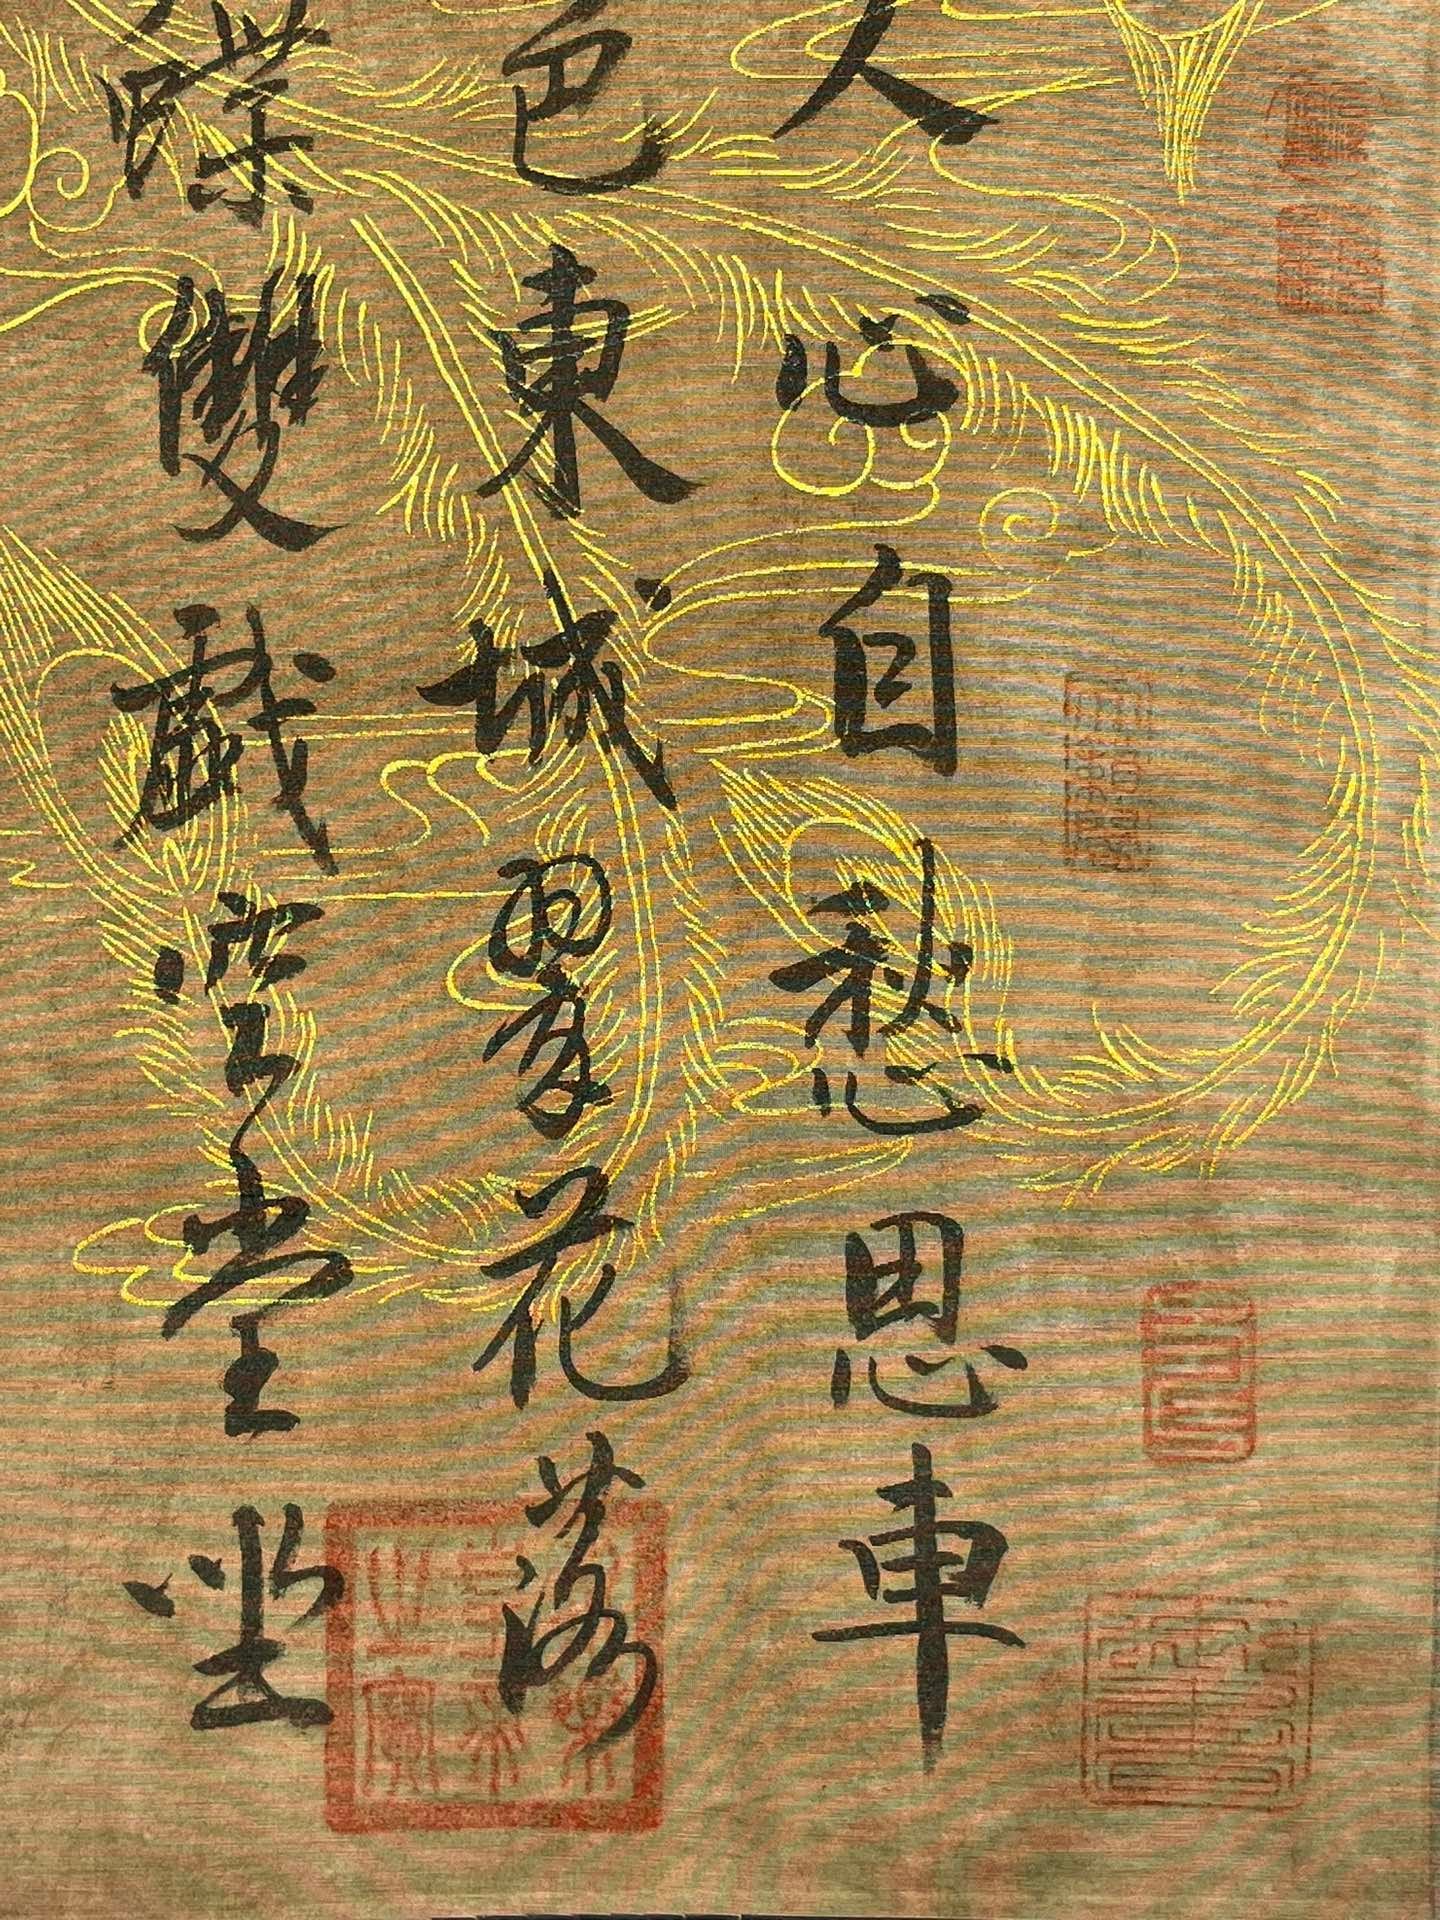 人心自愁思車
色東城翠花落
蝶雙戲空堂坐